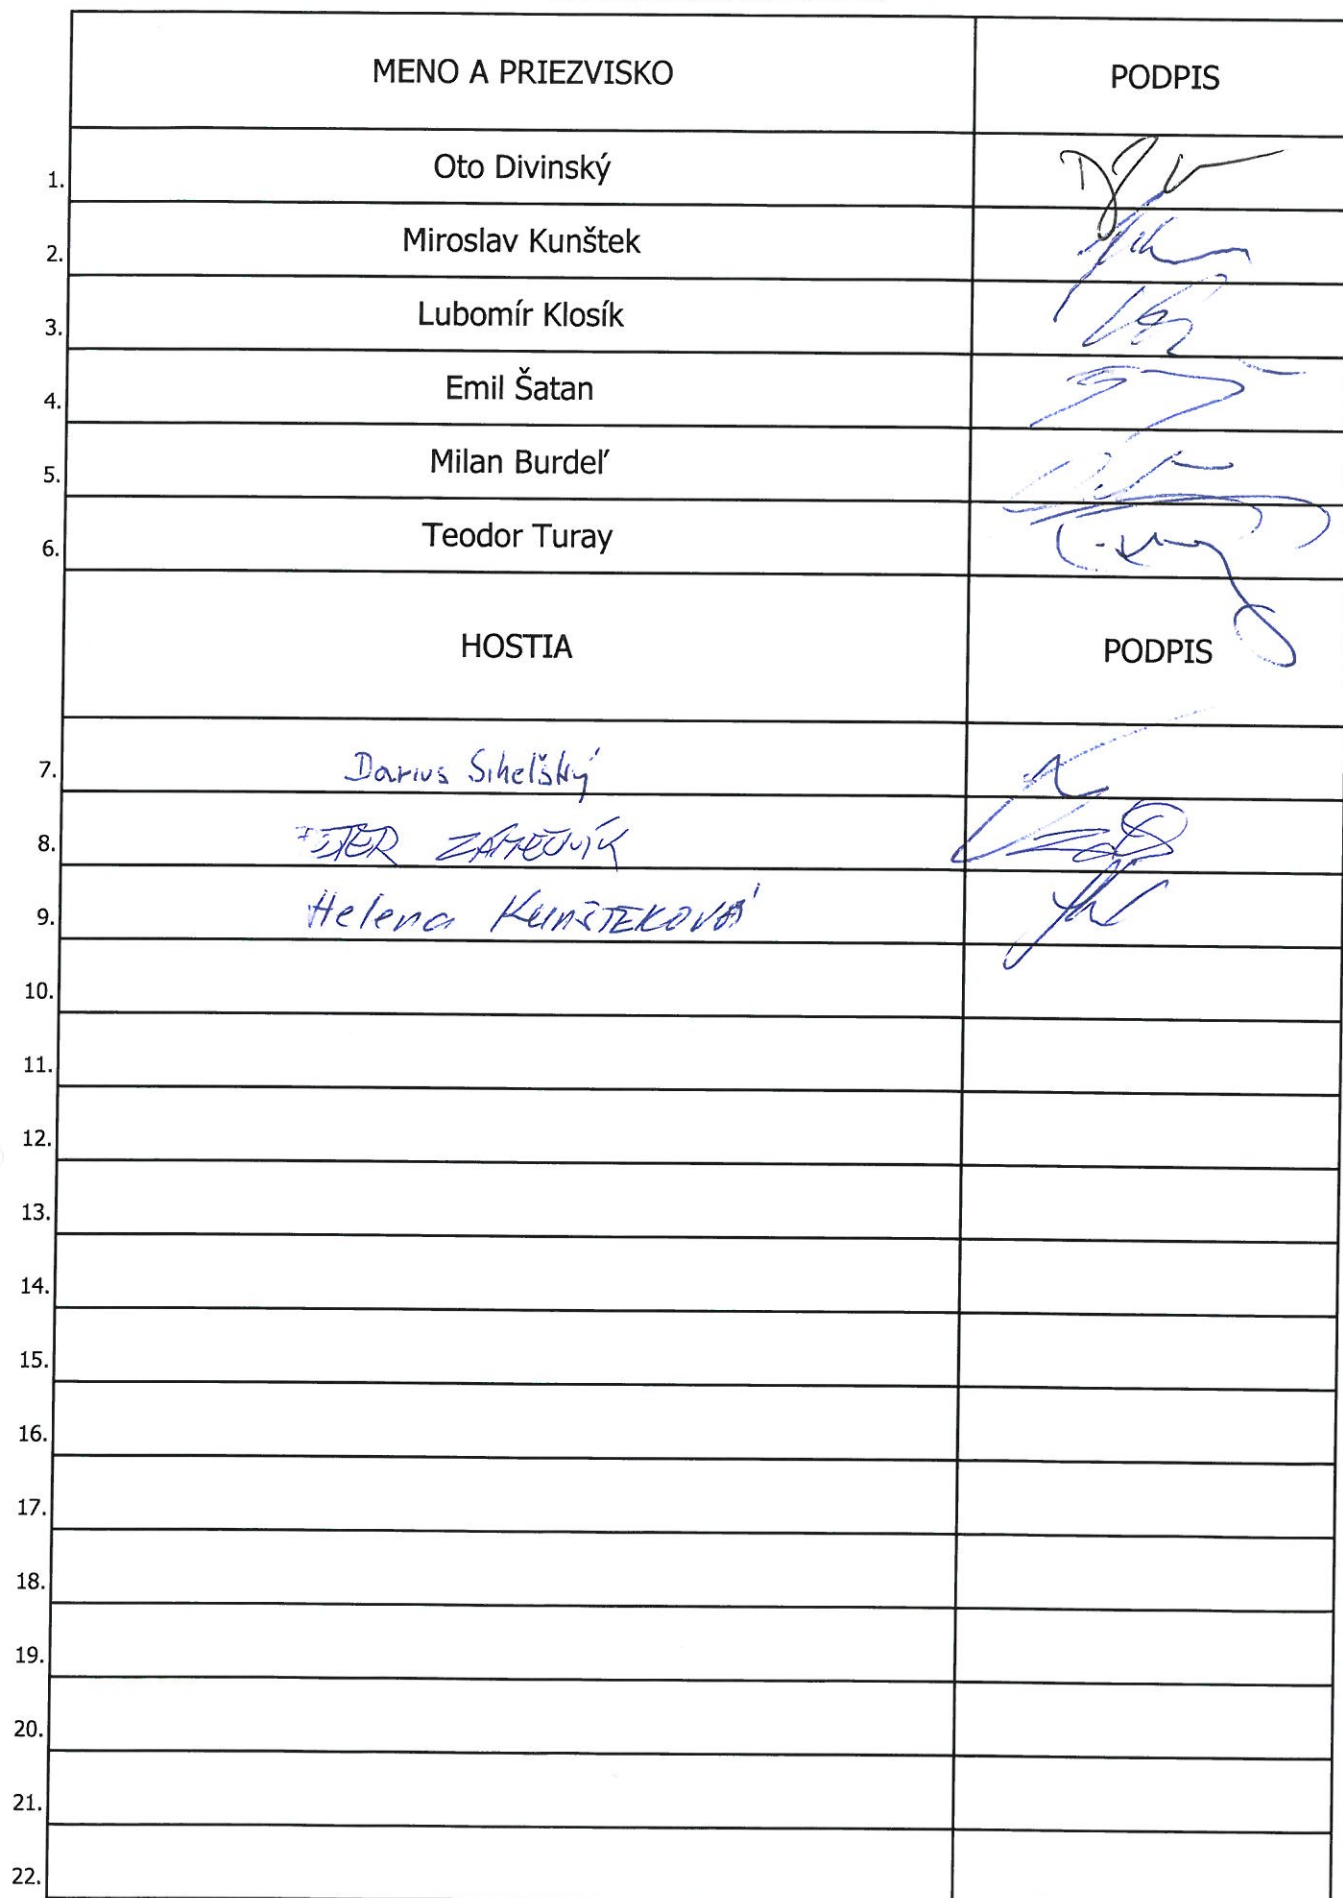 MENO A PRIEZVISKO PODPIS
1. Oto Divinský
2. Miroslav Kunštek
3. Lubomír Klosík
4. Emil Šatan
5. Milan Burdeľ
6. Teodor Turay
HOSTIA PODPIS
7. Darius Sihelský
8. PETER ZÁMEČNÍK
9. Helena KUNŠTEKOVÁ
10.
11.
12.
13.
14.
15.
16.
17.
18.
19.
20.
21.
22.